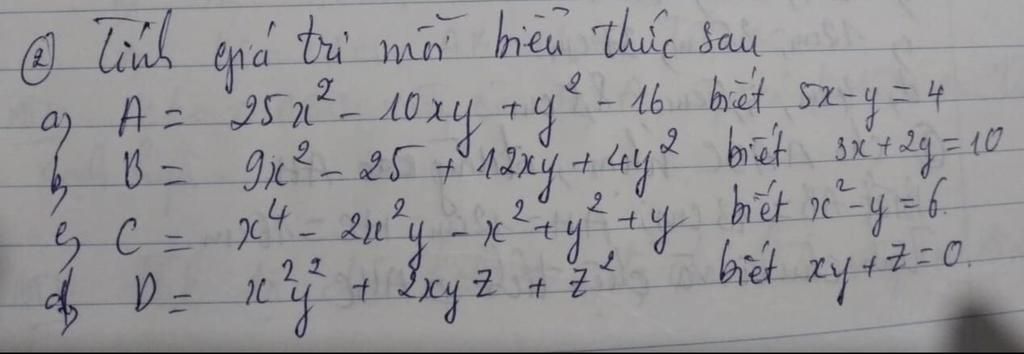 ② Tính giá trị mỗi biểu thức sau
a) A = 25x² - 10xy + y² - 16 biết 5x - y = 4
b) B = 9x² - 25 + 12xy + 4y² biết 3x + 2y = 10
c) C = x⁴ - 2x²y - x² + y² + y biết x² - y = 6.
d) D = x²y² + 2xyz + z² biết xy + z = 0.